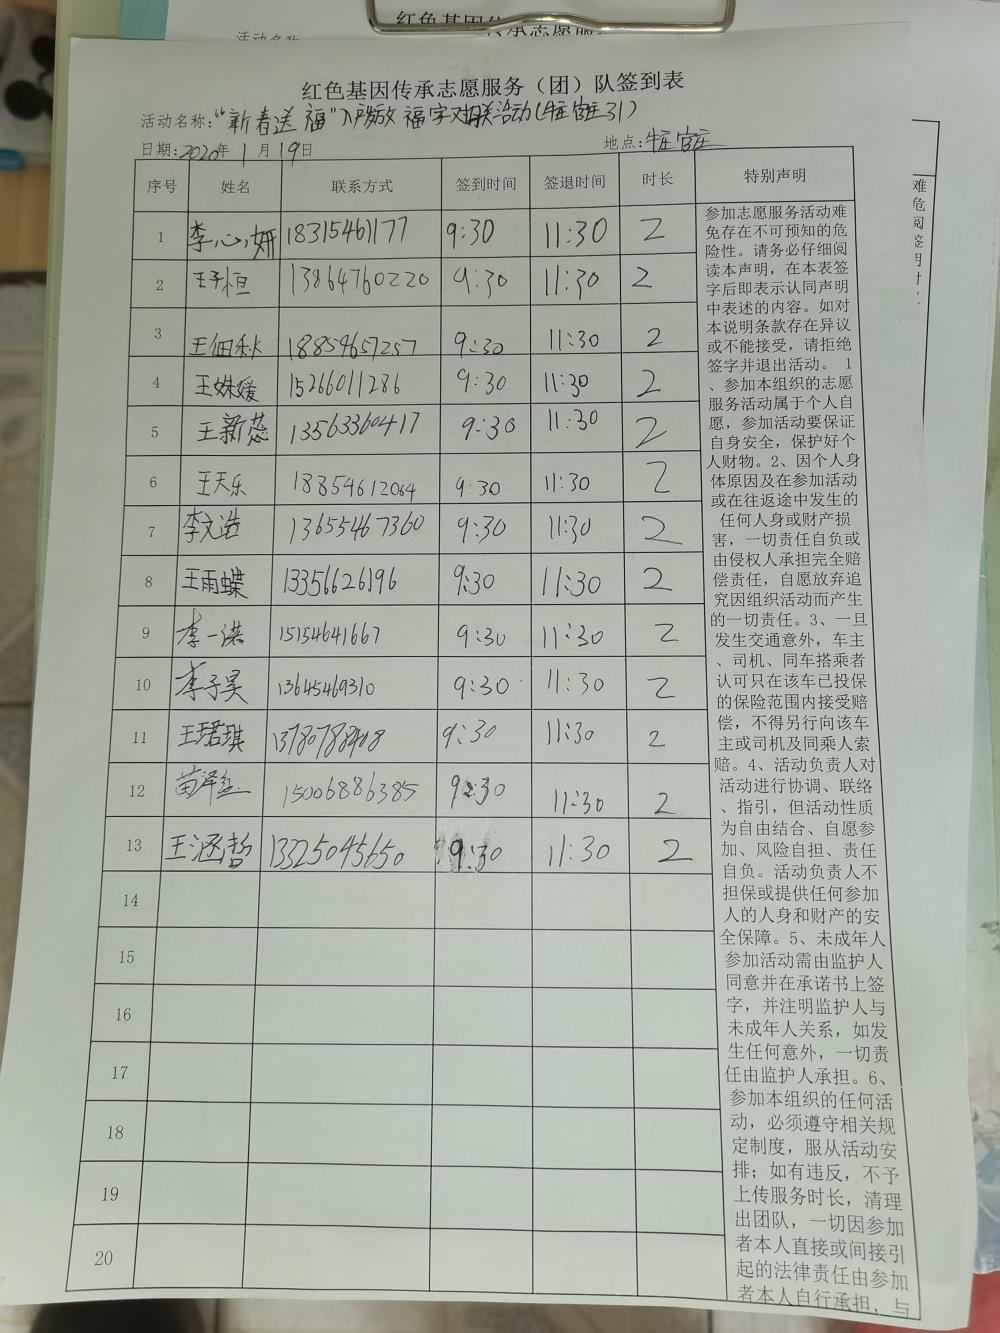 红色基因传承志愿服务（团）队签到表
活动名称：“新春送福”入户发放福字对联活动(牛庄官庄31)
日期：2020年1月19日
地点：牛庄官庄
序号 姓名 联系方式 签到时间 签退时间 时长 特别声明
1 李心妍 18315461177 9:30 11:30 2
2 王子桓 13864760220 9:30 11:30 2
3 王佃秋 18854657257 9:30 11:30 2
4 王姝媛 15266011286 9:30 11:30 2
5 王新蕊 13563360417 9:30 11:30 2
6 王天乐 18854612064 9:30 11:30 2
7 李文浩 13655467360 9:30 11:30 2
8 王雨蝶 13356626196 9:30 11:30 2
9 李一诺 15154641667 9:30 11:30 2
10 李子昊 13645469310 9:30 11:30 2
11 王珺琪 13780788408 9:30 11:30 2
12 苗泽 15006886385 9:30 11:30 2
13 王涵哲 13325045650 9:30 11:30 2
14
15
16
17
18
19
20
参加志愿服务活动难
免存在不可预知的危
险性。请务必仔细阅
读本声明，在本表签
字后即表示认同声明
中表述的内容。如对
本说明条款存在异议
或不能接受，请拒绝
签字并退出活动。 1
、参加本组织的志愿
服务活动属于个人自
愿，参加活动要保证
自身安全，保护好个
人财物。2、因个人身
体原因及在参加活动
或在往返途中发生的
任何人身或财产损
害，一切责任自负或
由侵权人承担完全赔
偿责任，自愿放弃追
究因组织活动而产生
的一切责任。3、一旦
发生交通意外，车主
、司机、同车搭乘者
认可只在该车已投保
的保险范围内接受赔
偿，不得另行向该车
主或司机及同乘人索
赔。4、活动负责人对
活动进行协调、联络
、指引，但活动性质
为自由结合、自愿参
加、风险自担、责任
自负。活动负责人不
担保或提供任何参加
人的人身和财产的安
全保障。5、未成年人
参加活动需由监护人
同意并在承诺书上签
字，并注明监护人与
未成年人关系，如发
生任何意外，一切责
任由监护人承担。6、
参加本组织的任何活
动，必须遵守相关规
定制度，服从活动安
排；如有违反，不予
上传服务时长，清理
出团队，一切因参加
者本人直接或间接引
起的法律责任由参加
者本人自行承担，与